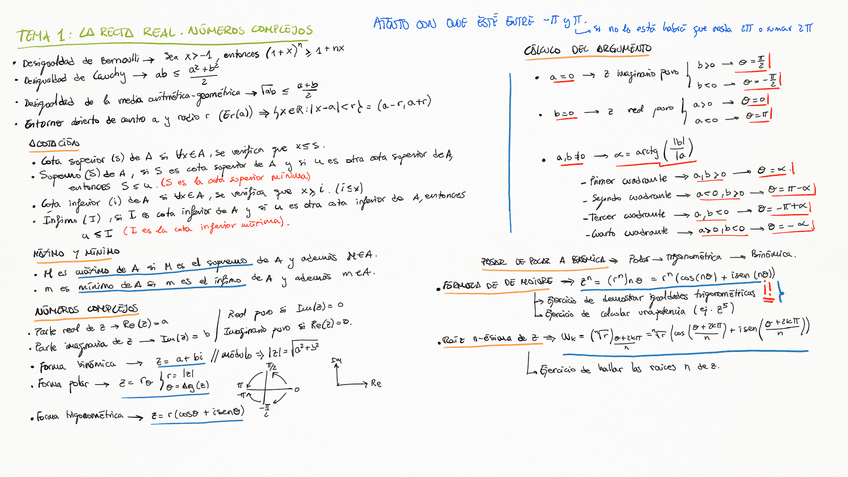 TEMA 1: LA RECTA REAL. NÚMEROS COMPLEJOS
• Desigualdad de Bernoulli → Sea x>-1, entonces (1+x)ⁿ ≥ 1+nx
• Desigualdad de Cauchy → ab ≤ (a²+b²)/2
• Desigualdad de la media aritmética-geométrica → √ab ≤ (a+b)/2
• Entorno abierto de centro a y radio r (Er(a)) ⇒ {x∈ℝ: |x-a|<r} = (a-r, a+r)
ACOTACIÓN
• Cota superior (s) de A si ∀x∈A, se verifica que x≤s.
• Supremo (S) de A, si S es cota superior de A y si u es otra cota superior de A,
entonces S≤u. (S es la cota superior mínima)
• Cota inferior (i) de A si ∀x∈A, se verifica que x≥i. (i≤x)
• Ínfimo (I), si I es cota inferior de A y si u es otra cota inferior de A, entonces
u≤I (I es la cota inferior máxima).
MÁXIMO Y MÍNIMO
• M es máximo de A si M es el supremo de A y además M∈A.
• m es mínimo de A si m es el ínfimo de A y además m∈A.
NÚMEROS COMPLEJOS
• Parte real de z → Re(z)=a
• Parte imaginaria de z → Im(z)=b
Real puro si Im(z)=0
Imaginario puro si Re(z)=0.
• Forma binómica → z=a+bi // módulo ⇒ |z|=√a²+b²
• Forma polar → z=rθ { r=|z|
θ=Arg(z)
π/2
π
-π
0
-π/2
Im
Re
• Forma trigonométrica → z=r(cosθ+isenθ)
ATENTO CON QUE ESTÉ ENTRE -π y π.
↳ si no lo está habrá que restar 2π o sumar 2π
CÁLCULO DEL ARGUMENTO
• a=0 → z imaginario puro { b>0 → θ=π/2
b<0 → θ=-π/2
• b=0 → z real puro { a>0 → θ=0
a<0 → θ=π
• a,b≠0 → α=arctg(|b|/|a|)
- Primer cuadrante → a,b>0 → θ=α
- Segundo cuadrante → a<0, b>0 → θ=π-α
- Tercer cuadrante → a,b<0 → θ=-π+α
- Cuarto cuadrante → a>0, b<0 → θ=-α
PASAR DE POLAR A BINÓMICA → Polar → Trigonométrica → Binómica.
• FÓRMULA DE DE MOIVRE → zⁿ = (rⁿ)nθ = rⁿ(cos(nθ)+isen(nθ))
↳ Ejercicio de demostrar igualdades trigonométricas !!
↳ Ejercicio de calcular una potencia (ej. z⁵)
• Raíz n-ésima de z ⇒ Wk = (ⁿ√r)(θ+2kπ)/n = ⁿ√r (cos((θ+2kπ)/n) + isen((θ+2kπ)/n))
↳ Ejercicio de hallar las raíces n de z.